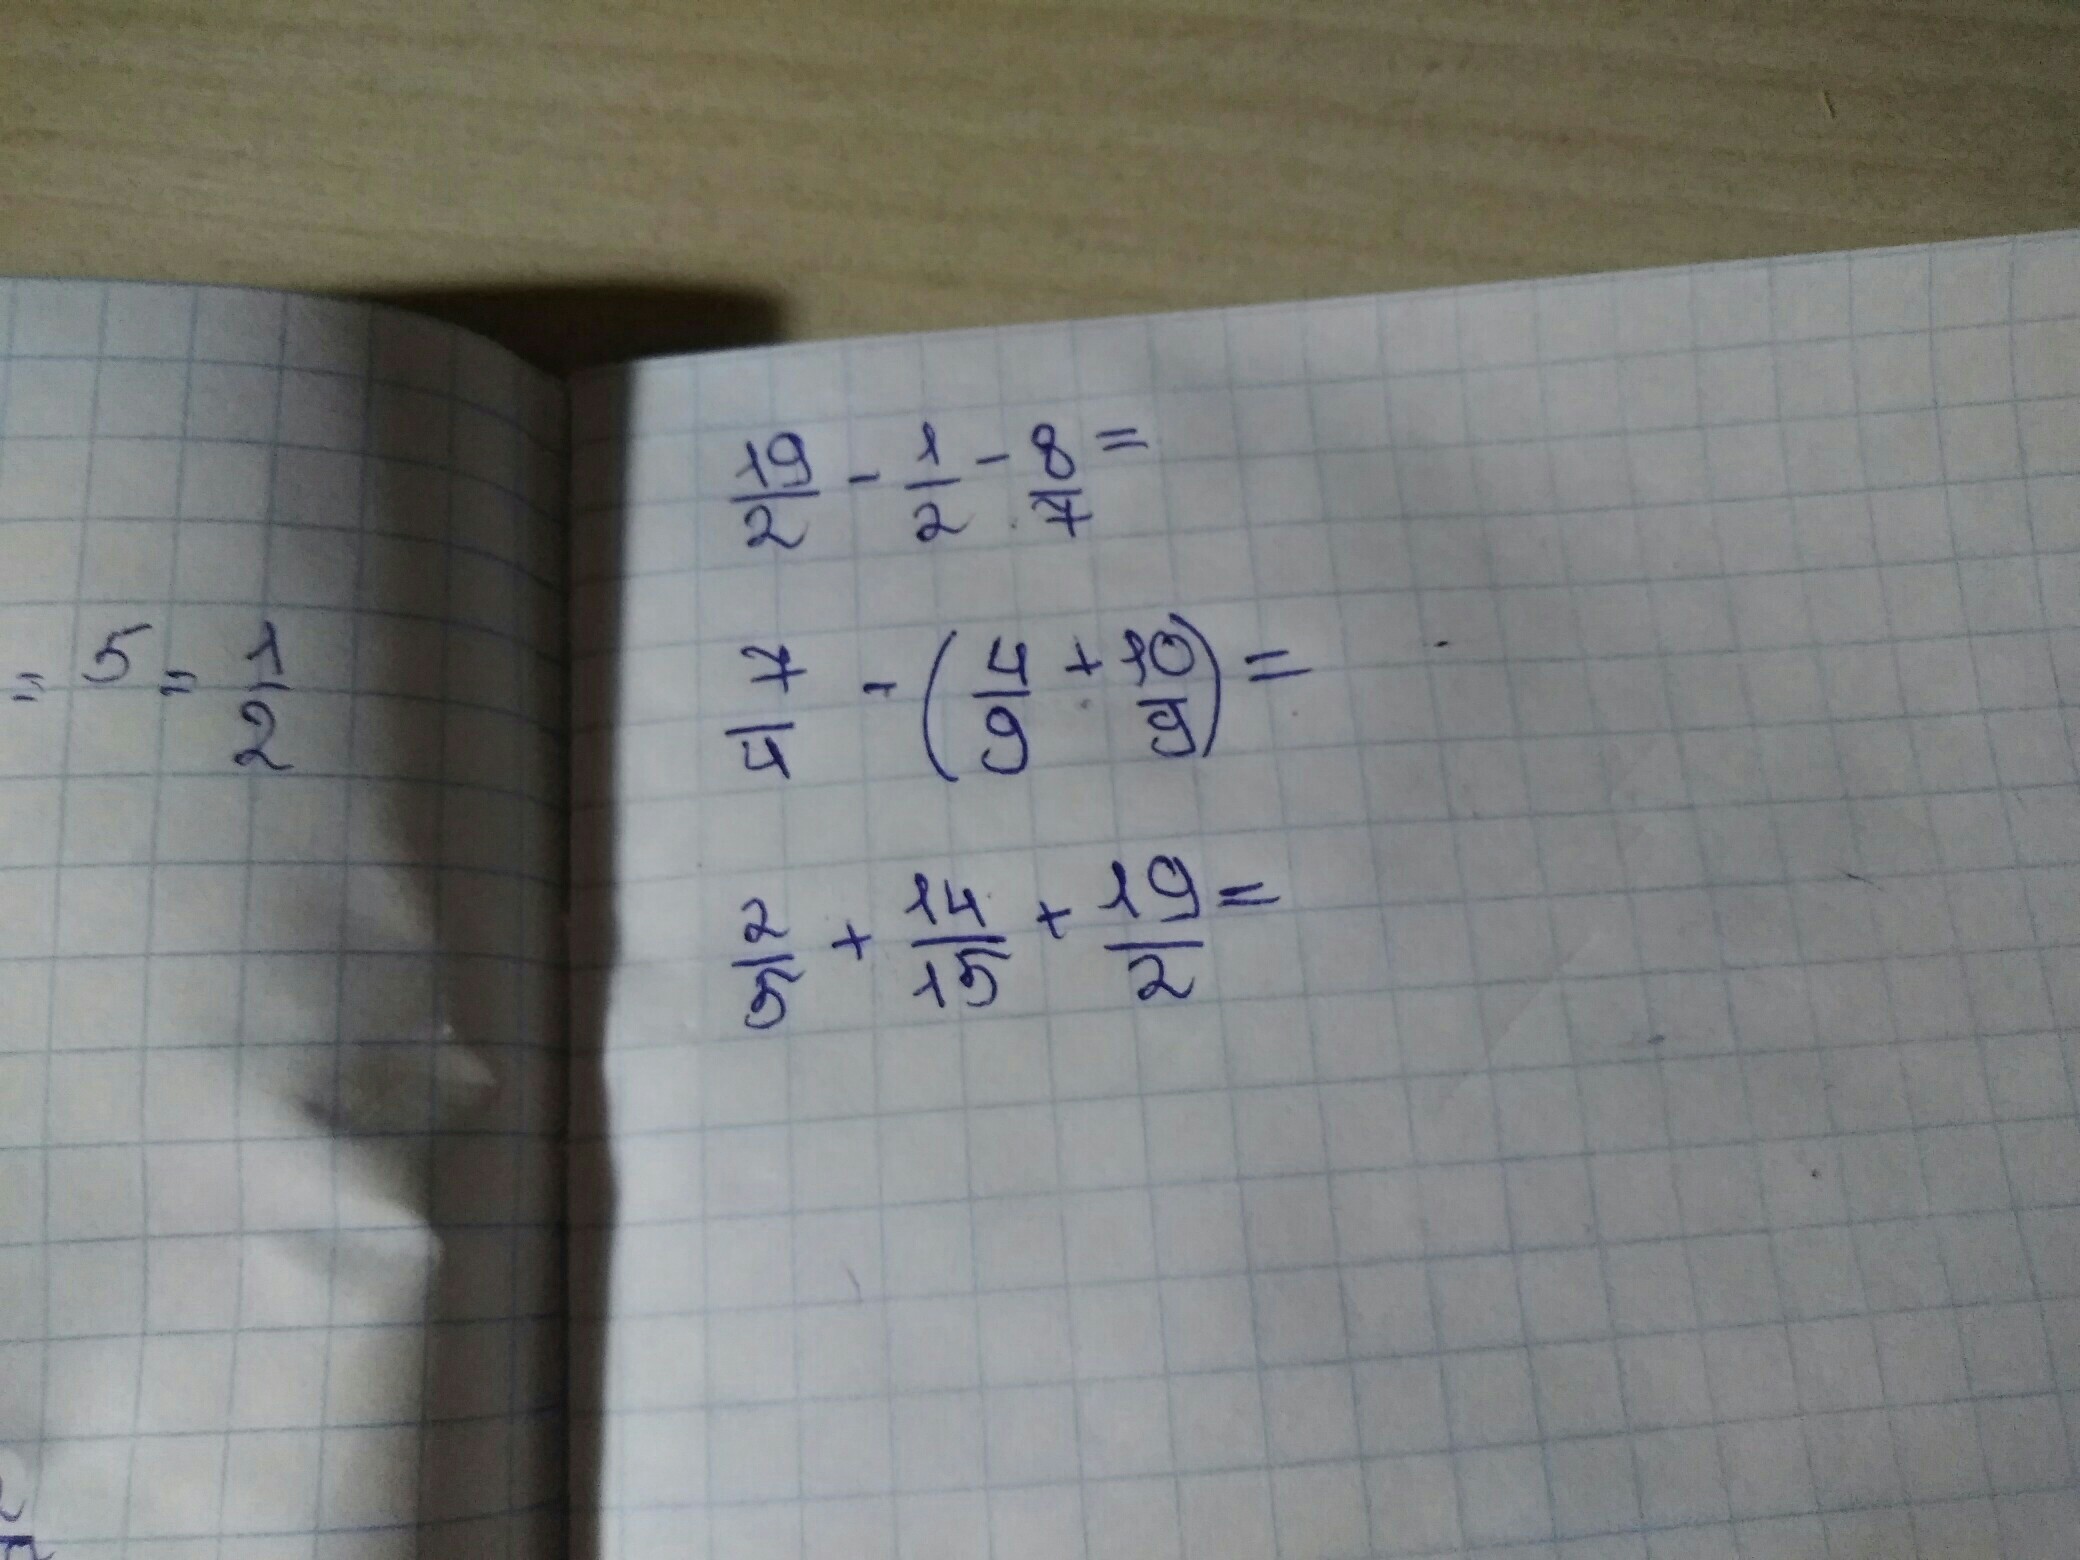 = 5 = 1/2
19/2 - 1/2 - 8/7 =
7/4 - (4/9 + 10/9) =
2/5 + 14/15 + 19/2 =